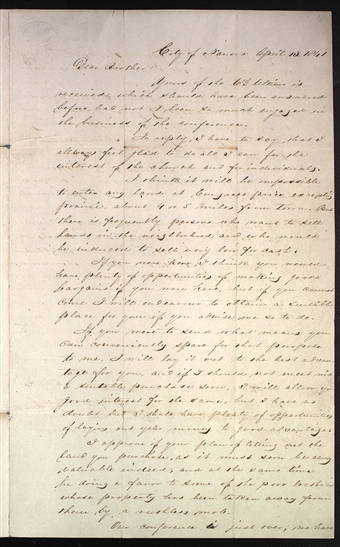 City of Nauvoo April 13. 1841
Dear Brother
Yours of the ultimo is
received, which should have been answered
before, had not I been so much engaged in
the business of the conference.
In reply, I have to say, that I
always feel glad to do all I can for the
interest of the church and for individuals.
I think it will be impossible
to enter any land at Congress price excepting
prairie about 4 or 5 miles from town. But
there is frequently persons who want to sell
lands in the neighborhood and who would
be induced to sell very low for cash.
If you were here, I think you would
have plenty of opportunities of making good
bargains if you were here, but if you cannot
come I will endeavour to obtain a suitable
place for you if you advise me so to do.
If you were to send what means you
can conveniently spare for that purpose
to me, I will lay it out to the best advan
tage for you, and if I should not meet with
a suitable purchase soon, I will allow you
good interest for the same, but I have no
doubt but I shall have plenty of opportunities
of laying out your money to good advantage.
I approve of your plan of letting out the
land you purchase, as it must soon be very
valuable indeed; and at the same time
be doing a favor to some of the poor brethren
whose property has been taken away from
them by a ruthless mob.
Our conference is just over; we have